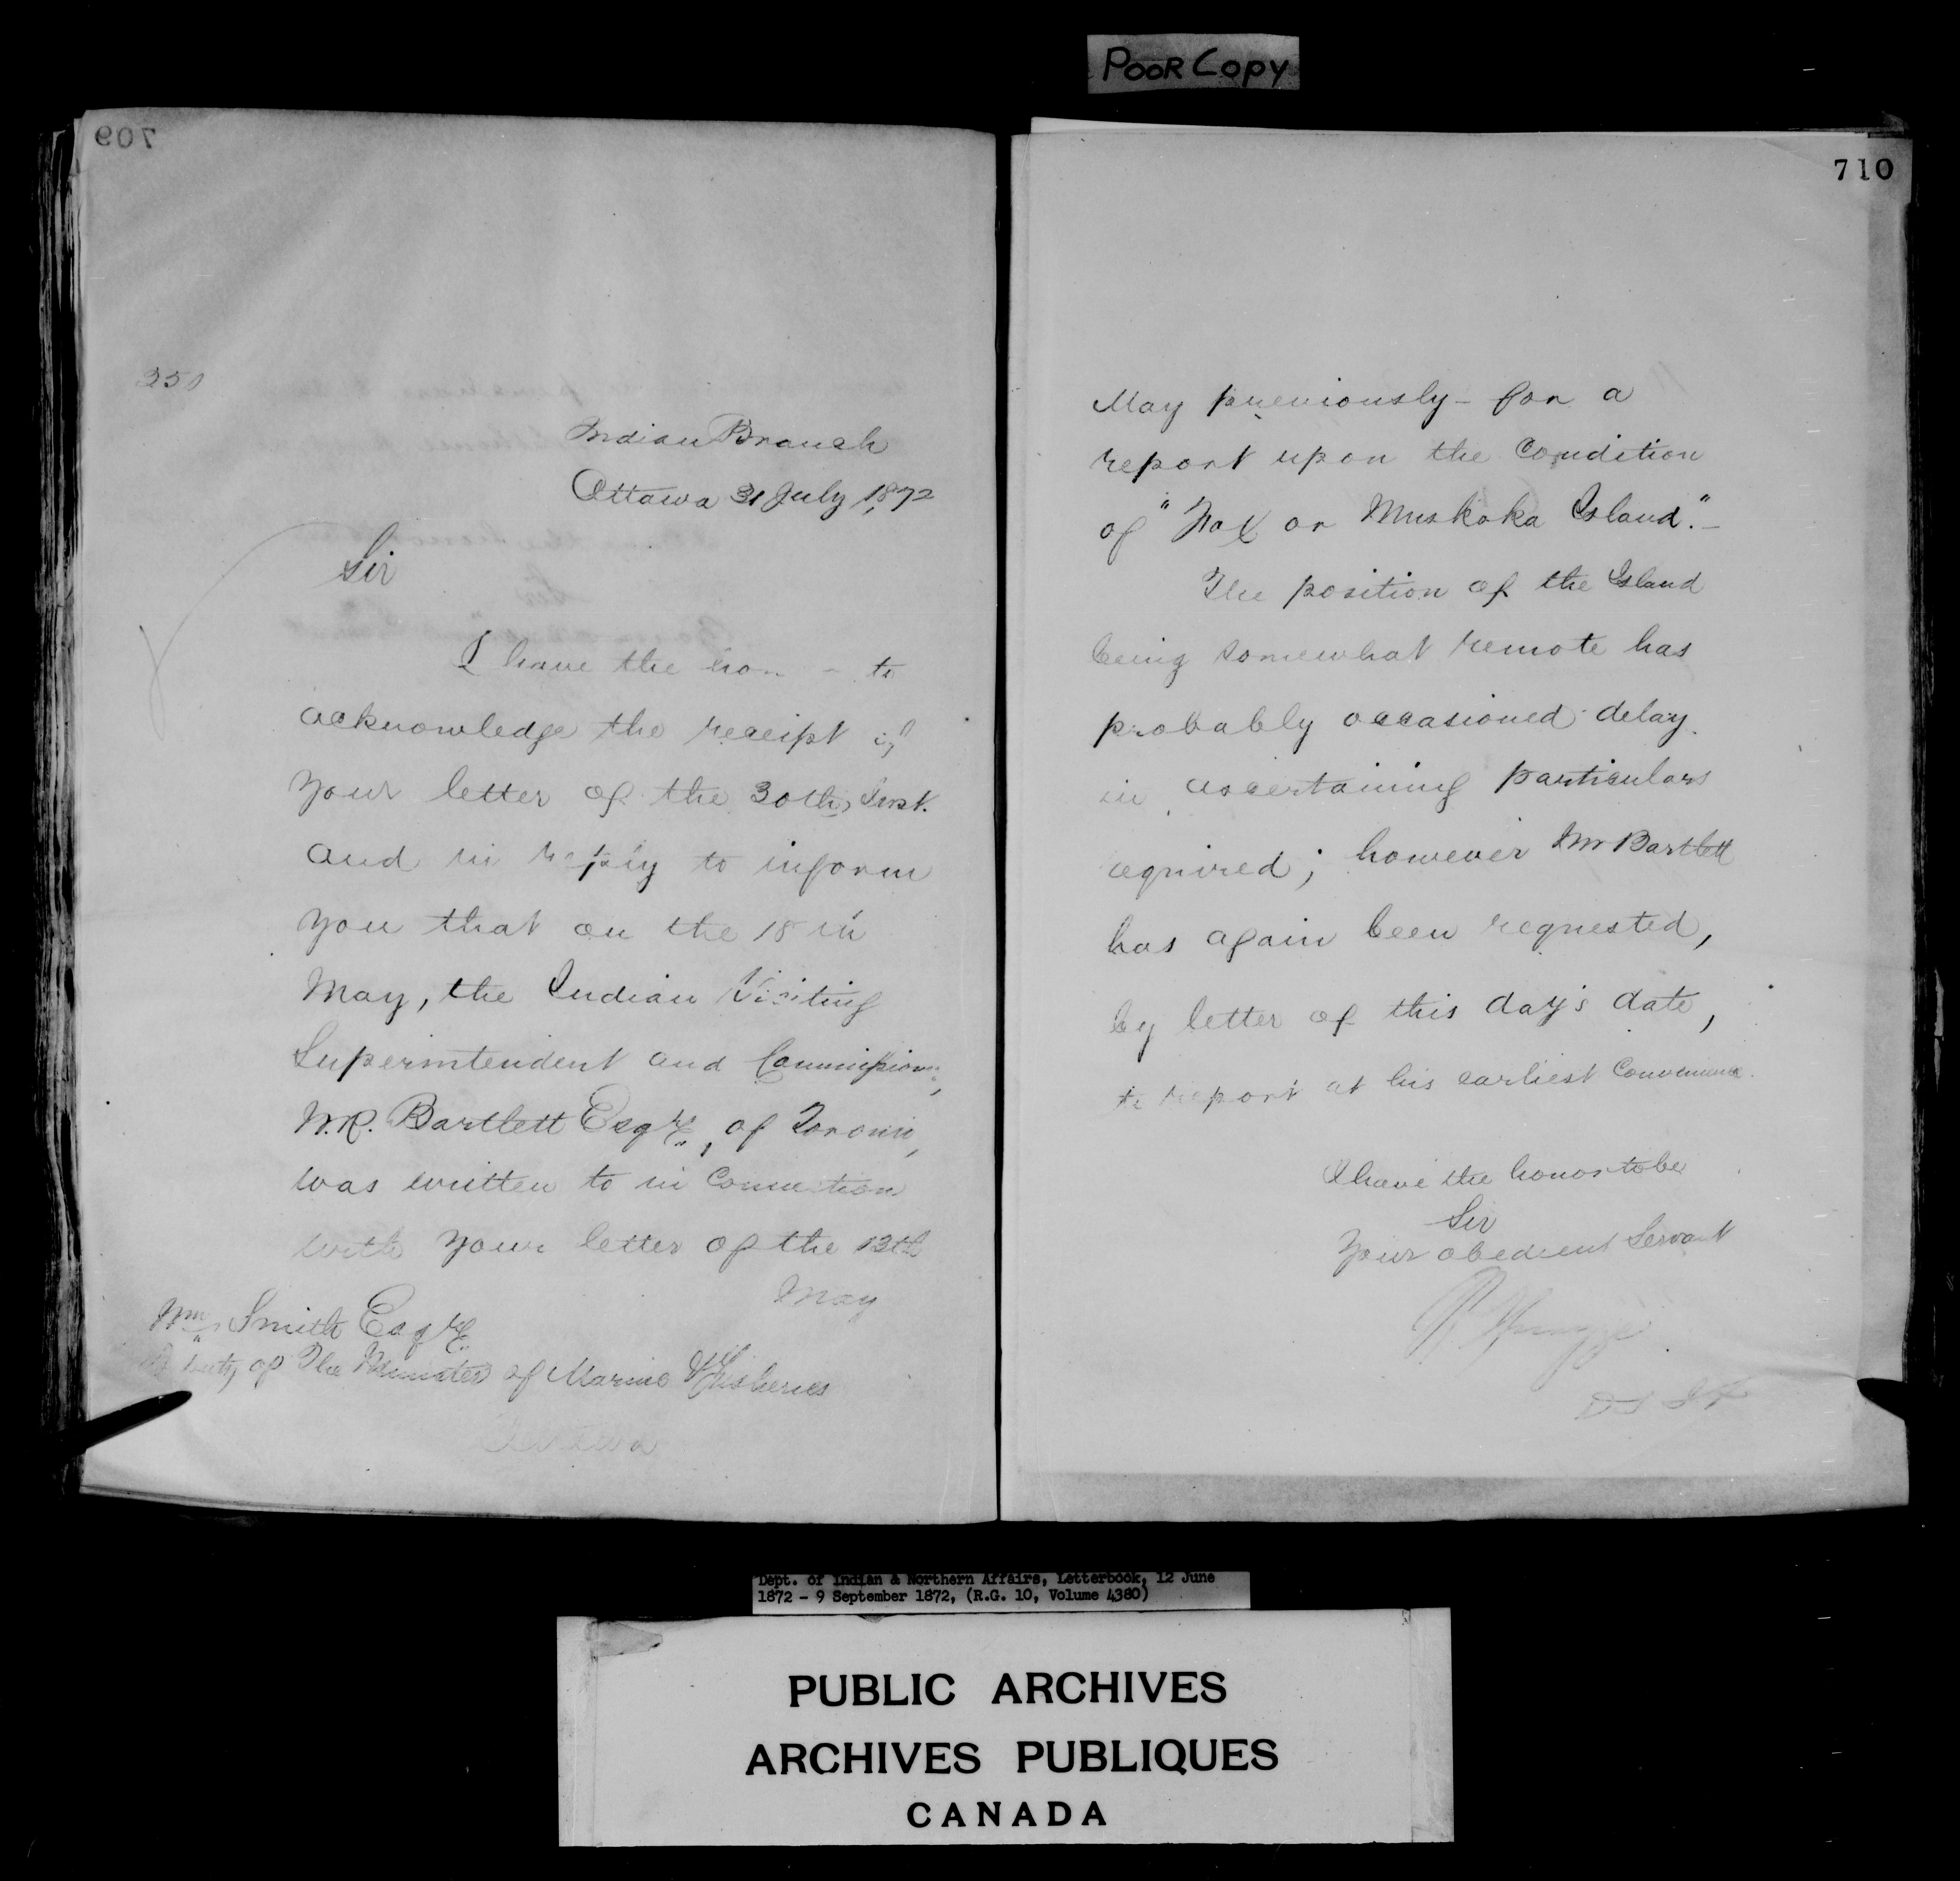 POOR Copy
709
250
Indian Branch
Ottawa 31 July 1872
Sir
I have the hon to
acknowledge the receipt of
your letter of the 30th Inst.
and in reply to inform
you that on the 18th
May, the Indian Visiting
Superintendent and Commissioner,
W.R. Bartlett Esqre, of Toronto,
was written to in Connection
with your letter of the 13th
May
Wm Smith Esqre
Deputy of The Minister of Marine & Fisheries
Ottawa
710
May previously – for a
report upon the Condition
of "Fox or Muskoka Island." –
The position of the Island
being somewhat remote has
probably occasioned delay
in ascertaining particulars
required; however Mr Bartlett
has again been requested,
by letter of this day's date,
to report at his earliest Convenience.
I have the honor to be
Sir
Your obedient Servant
Dept. of Indian & Northern Affairs, Letterbook, 12 June
1872 - 9 September 1872, (R.G. 10, Volume 4380)
PUBLIC ARCHIVES
ARCHIVES PUBLIQUES
CANADA